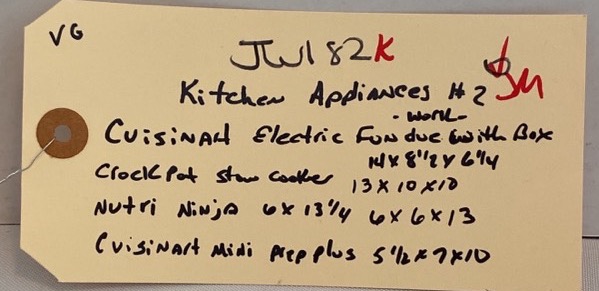 VG
JW182K
Kitchen Appliances #2
- work -
Cuisinart Electric Fondue with Box
14 x 8 1/2 x 6 1/4
Crock Pot slow cooker 13 x 10 x 10
Nutri Ninja 6 x 13 1/4 6 x 6 x 13
Cuisinart Mini prep plus 5 1/2 x 7 x 10